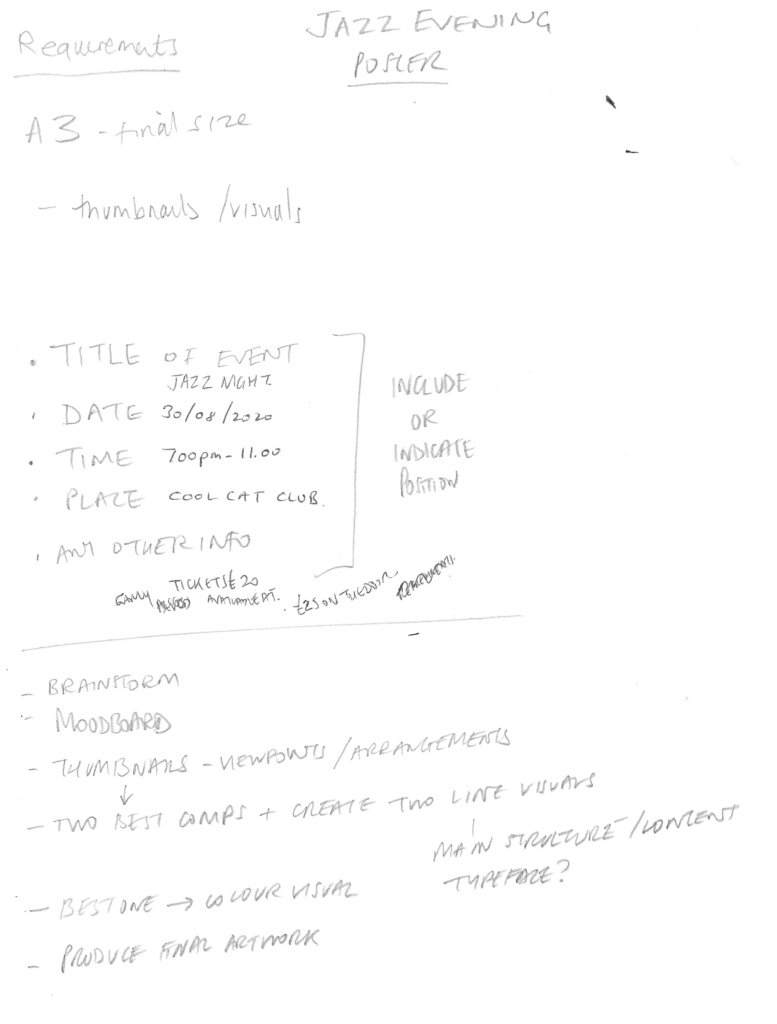 JAZZ EVENING
POSTER
Requirements
A3 - final size
- thumbnails / visuals
• TITLE OF EVENT
JAZZ NGHT.
• DATE 30/08/2020
• TIME 700pm - 11.00
• PLACE COOL CAT CLUB.
• ANY OTHER INFO
INCLUDE
OR
INDICATE
POSITION
TICKETS £20
AVAILABLE AT. £25 ON THE DOOR
- BRAINSTORM
- MOODBOARD
- THUMBNAILS - VIEWPOINTS / ARRANGEMENTS
↓
- TWO BEST COMPS + CREATE TWO LINE VISUALS
MAIN STRUCTURE / CONTENT
TYPEFACE?
- BEST ONE → COLOUR VISUAL
- PRODUCE FINAL ARTWORK